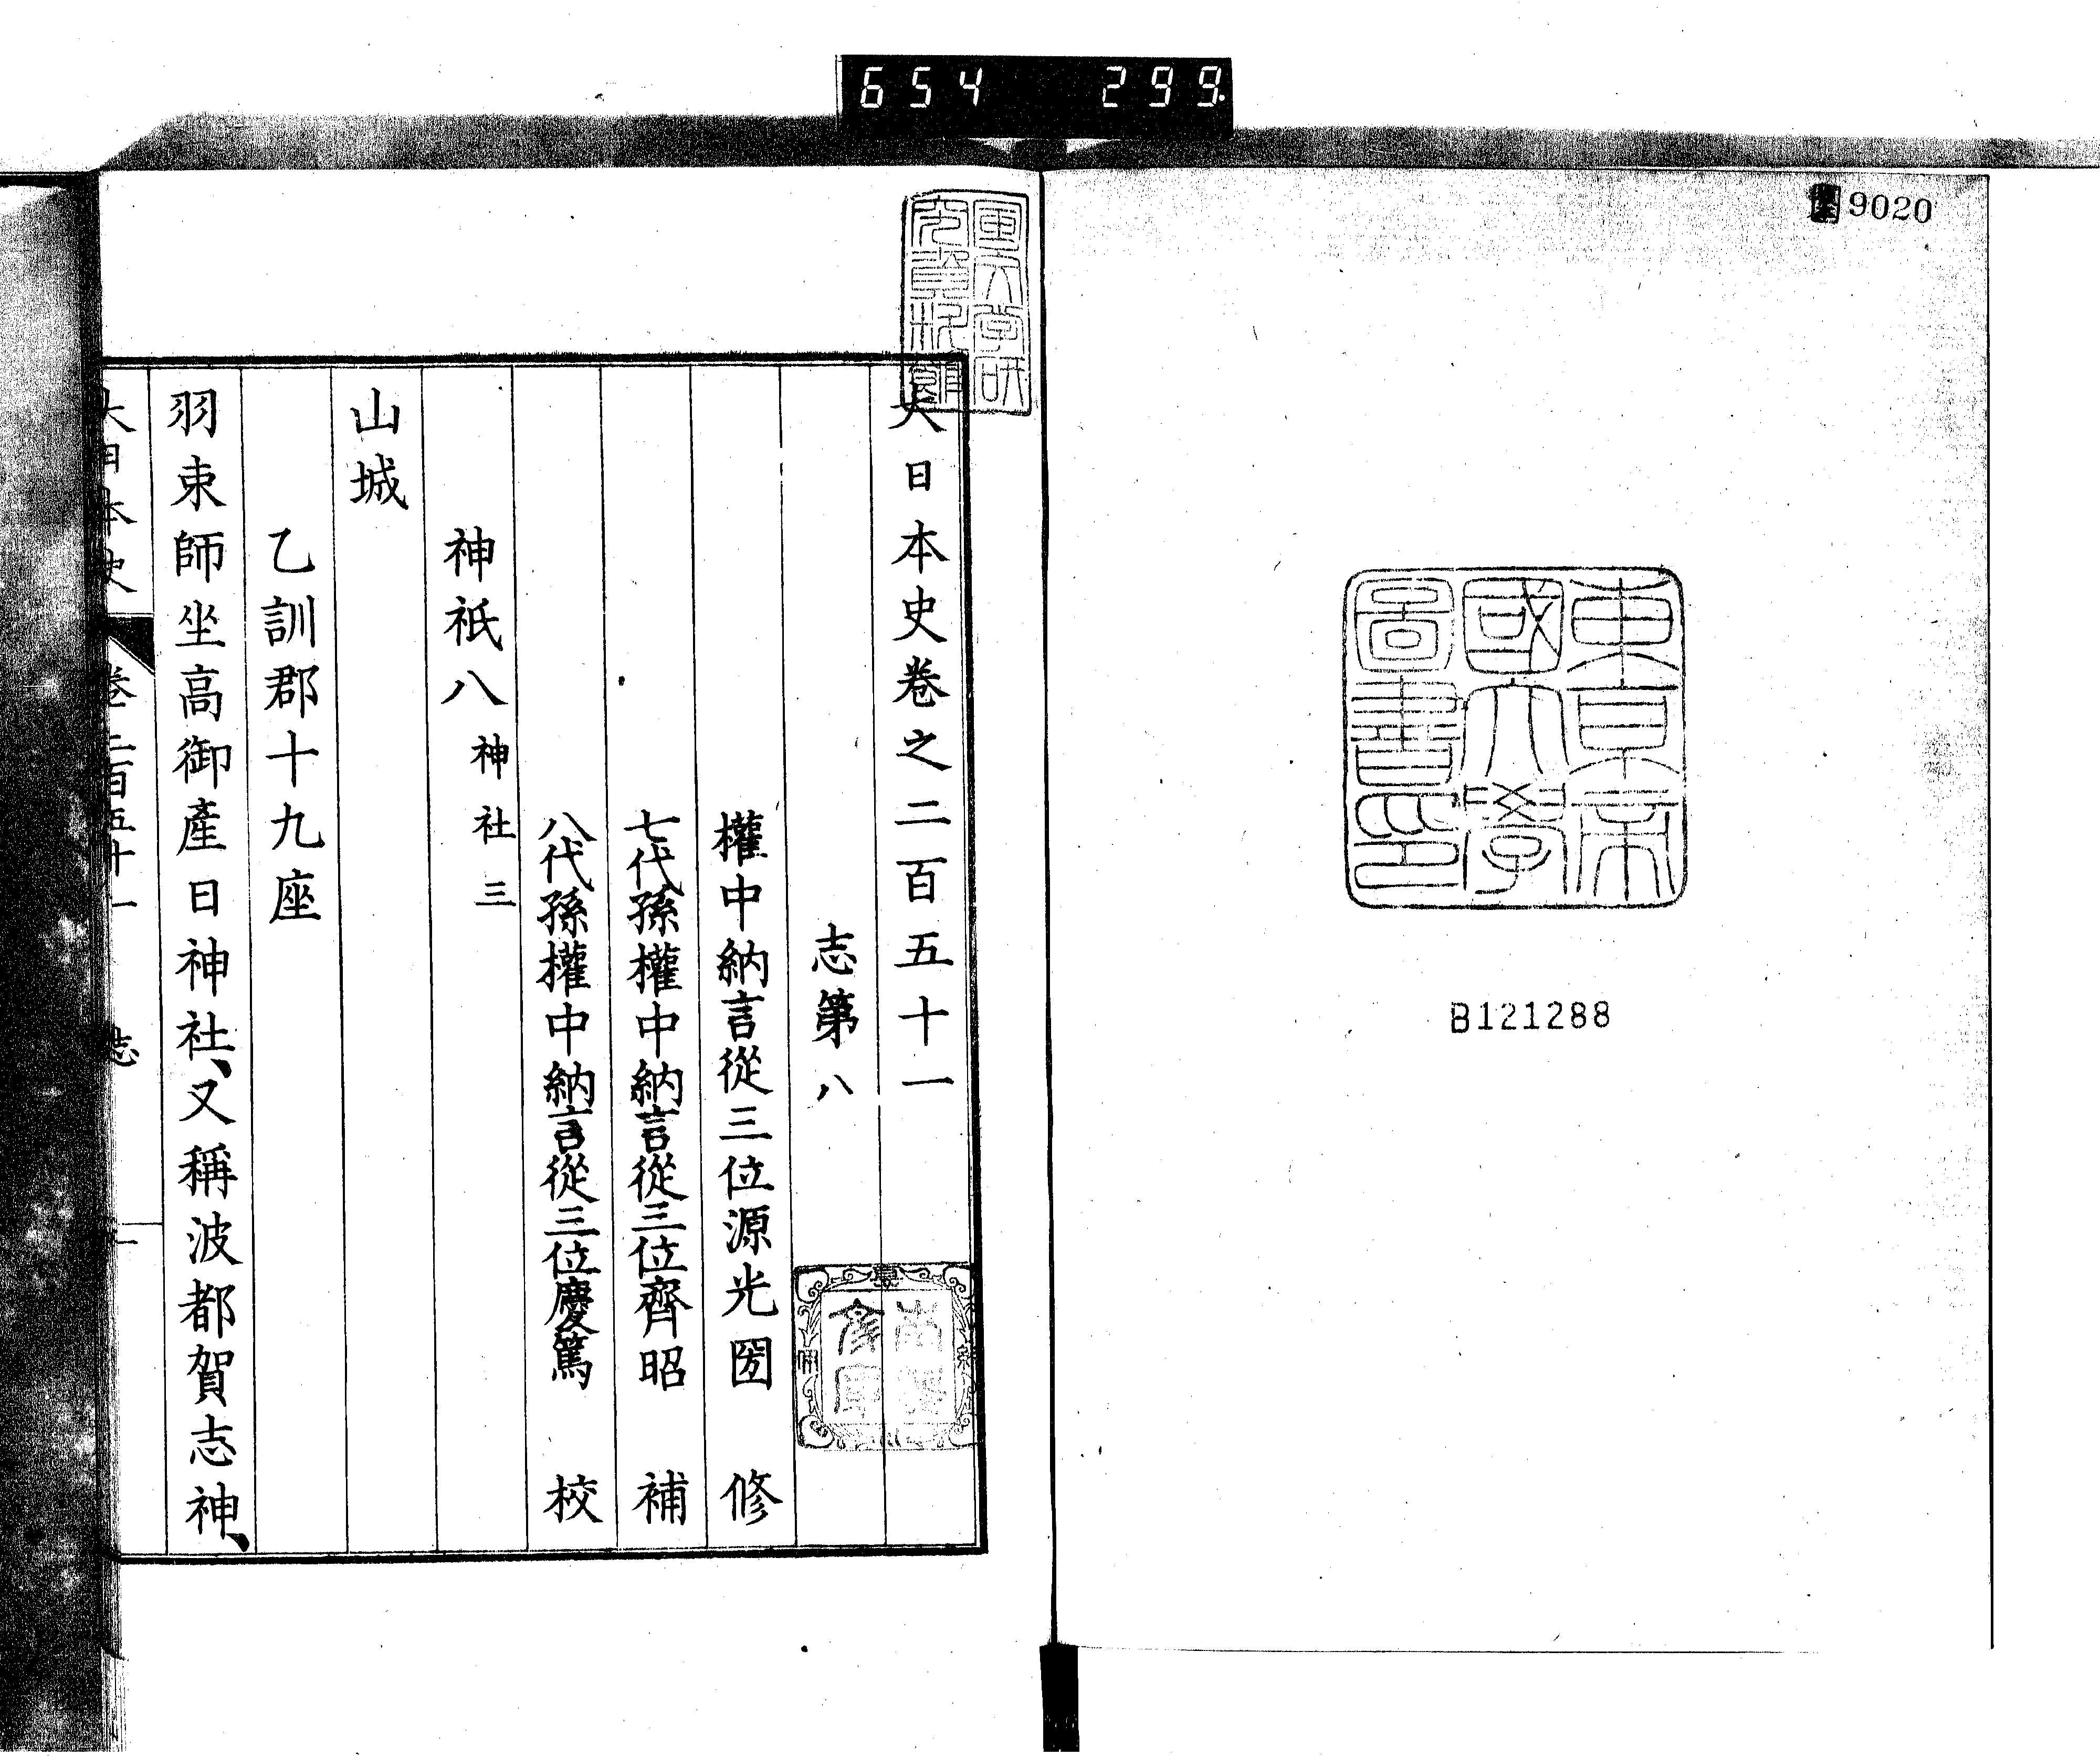 654 299.
9020
東京帝
國大學
圖書印
B121288
大日本史卷之二百五十一
志第八
權中納言從三位源光圀 修
七代孫權中納言從三位齊昭 補
八代孫權中納言從三位慶篤 校
神祇八 神社三
山城
乙訓郡十九座
羽束師坐高御產日神社、又稱波都賀志神、
大日本史 卷二百五十一 志 一